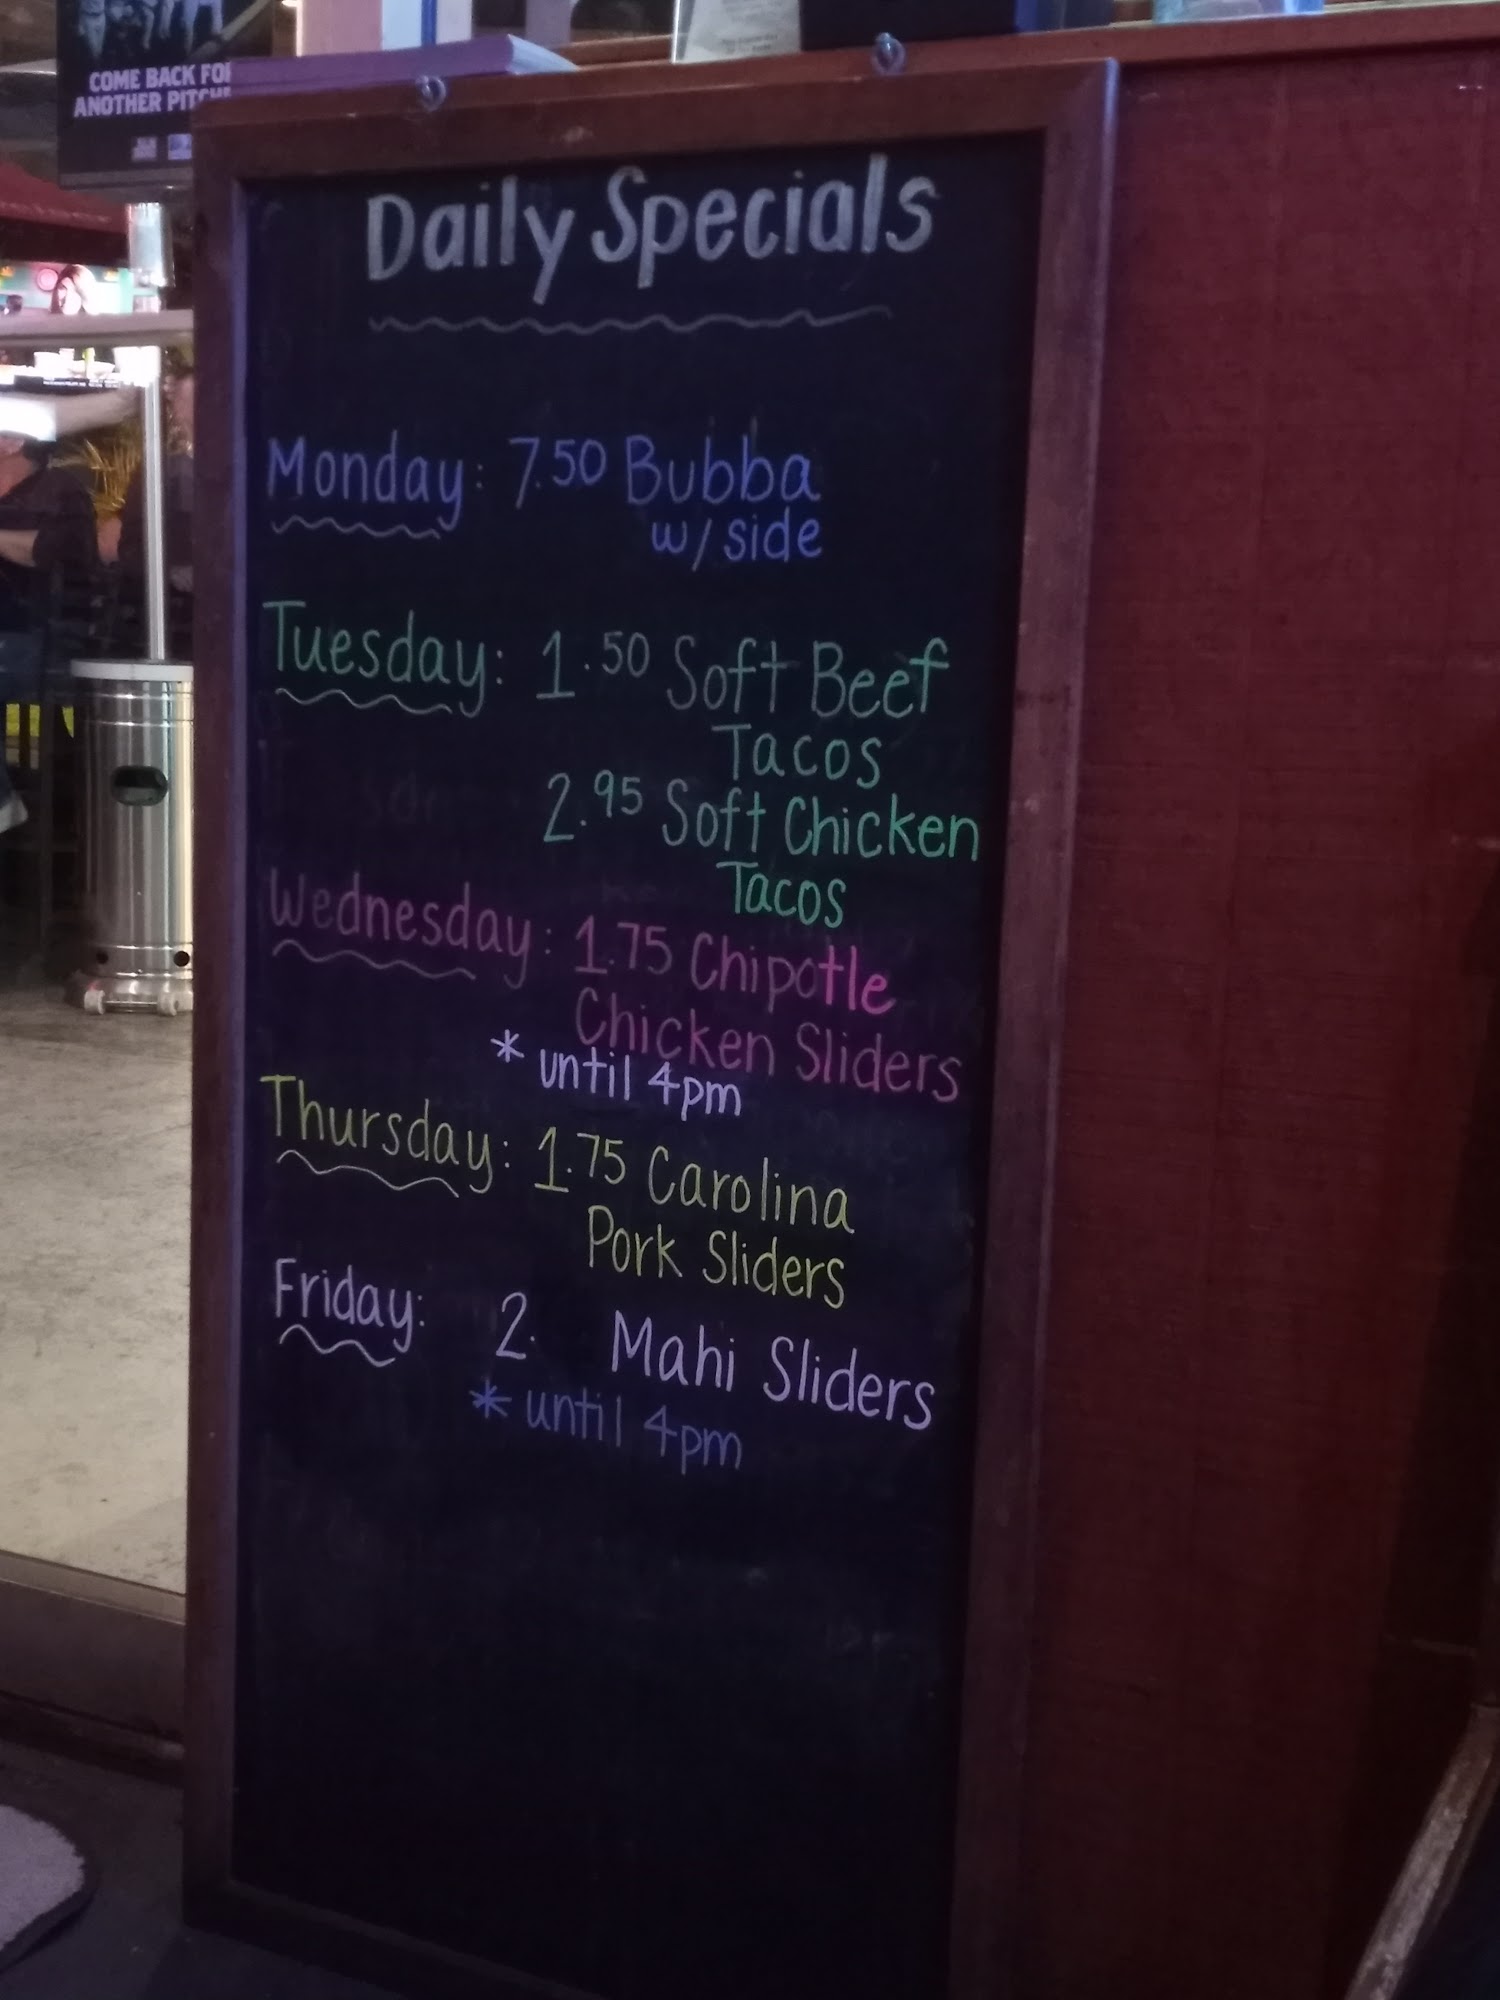 COME BACK FOR
ANOTHER PITCHE
Daily Specials
Monday: 7.50 Bubba
w/ side
Tuesday: 1.50 Soft Beef
Tacos
2.95 Soft Chicken
Tacos
Wednesday: 1.75 Chipotle
Chicken Sliders
* until 4pm
Thursday: 1.75 Carolina
Pork Sliders
Friday: 2. Mahi Sliders
* until 4pm